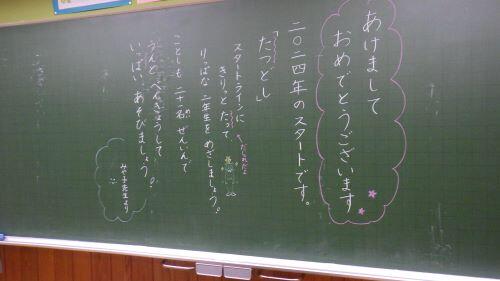 あけまして
おめでとうございます
二〇二四年のスタートです。
「たつどし」
スタートラインに
きりっとたって
りっぱな二年生をめざしましょう。
ことしも二十一名ぜんいんで
うんとべんきょうして
いっぱいあそびましょう。